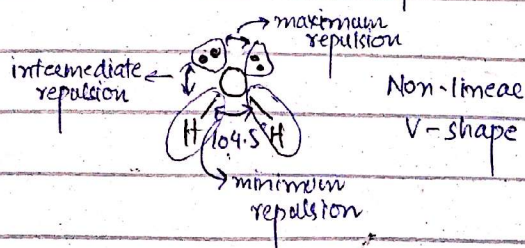 maximum
repulsion
intermediate
repulsion
Non-linear
V-shape
H 104.5° H
minimum
repulsion